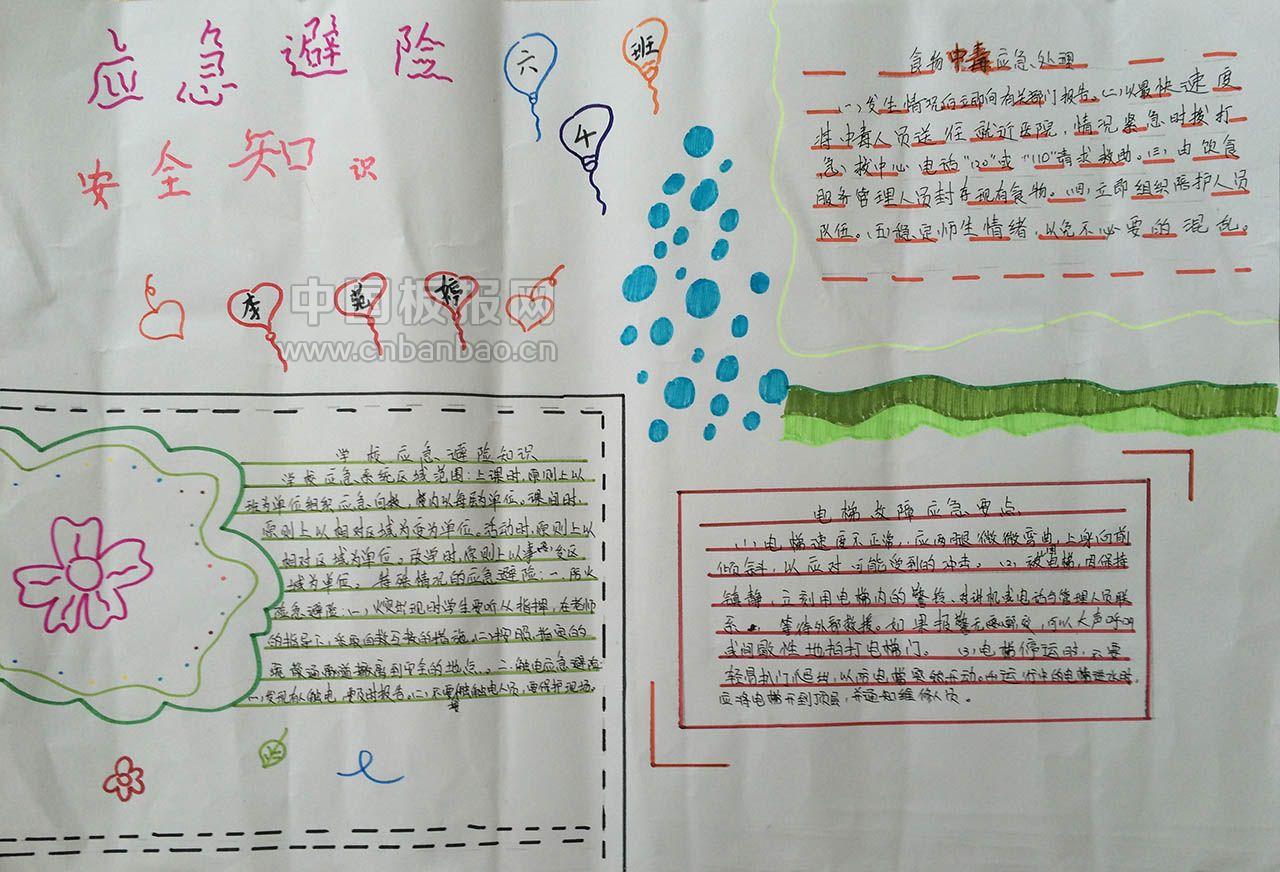 应急避险
六
4
班
安全知识
李
苑
婷
中国板报网
www.cnbanbao.cn
食物中毒应急处理
(一)发生情况后立即向有关部门报告。(二)以最快速度
将中毒人员送往就近医院,情况紧急时拨打
急救中心电话"120"或"110"请求救助。(三)由饮食
服务管理人员封存现有食物。(四)立即组织陪护人员
队伍。(五)稳定师生情绪,以免不必要的混乱。
学校应急避险知识
学校应急系统区域范围:上课时,原则上以
班为单位组织应急自救,楼内以每层为单位。课间时,
原则上以相对区域为单位。活动时,原则上以
相对区域为单位。放学时,原则上以
区域为单位。特殊情况的应急避险:一、防火
应急避险:(一)火灾出现时学生要听从指挥,在老师
的指导下,采取自救互救的措施。(二)按照指定的
通道撤离到安全的地点。二、触电应急避险:
(一)发现有人触电,要及时报告。(二)不要接触触电人员,要保护现场。
电梯故障应急要点
(1)电梯速度不正常,应两腿微微弯曲,上身向前
倾斜,以应对可能受到的冲击。(2)被困电梯,内保持
镇静,立刻用电梯内的警铃、对讲机或电话与管理人员联
系,等待外部救援。如果报警无效,可以大声呼叫
或间歇性地拍打电梯门。(3)电梯停运时,不要
轻易扒门爬出,以防电梯突然开动。(4)运行中的电梯进水时,
应将电梯开到顶层,并通知维修人员。